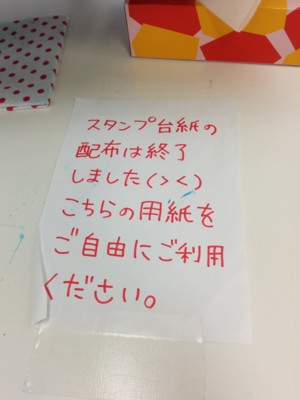 スタンプ台紙の
配布は終了
しました(><)
こちらの用紙を
ご自由にご利用
ください。